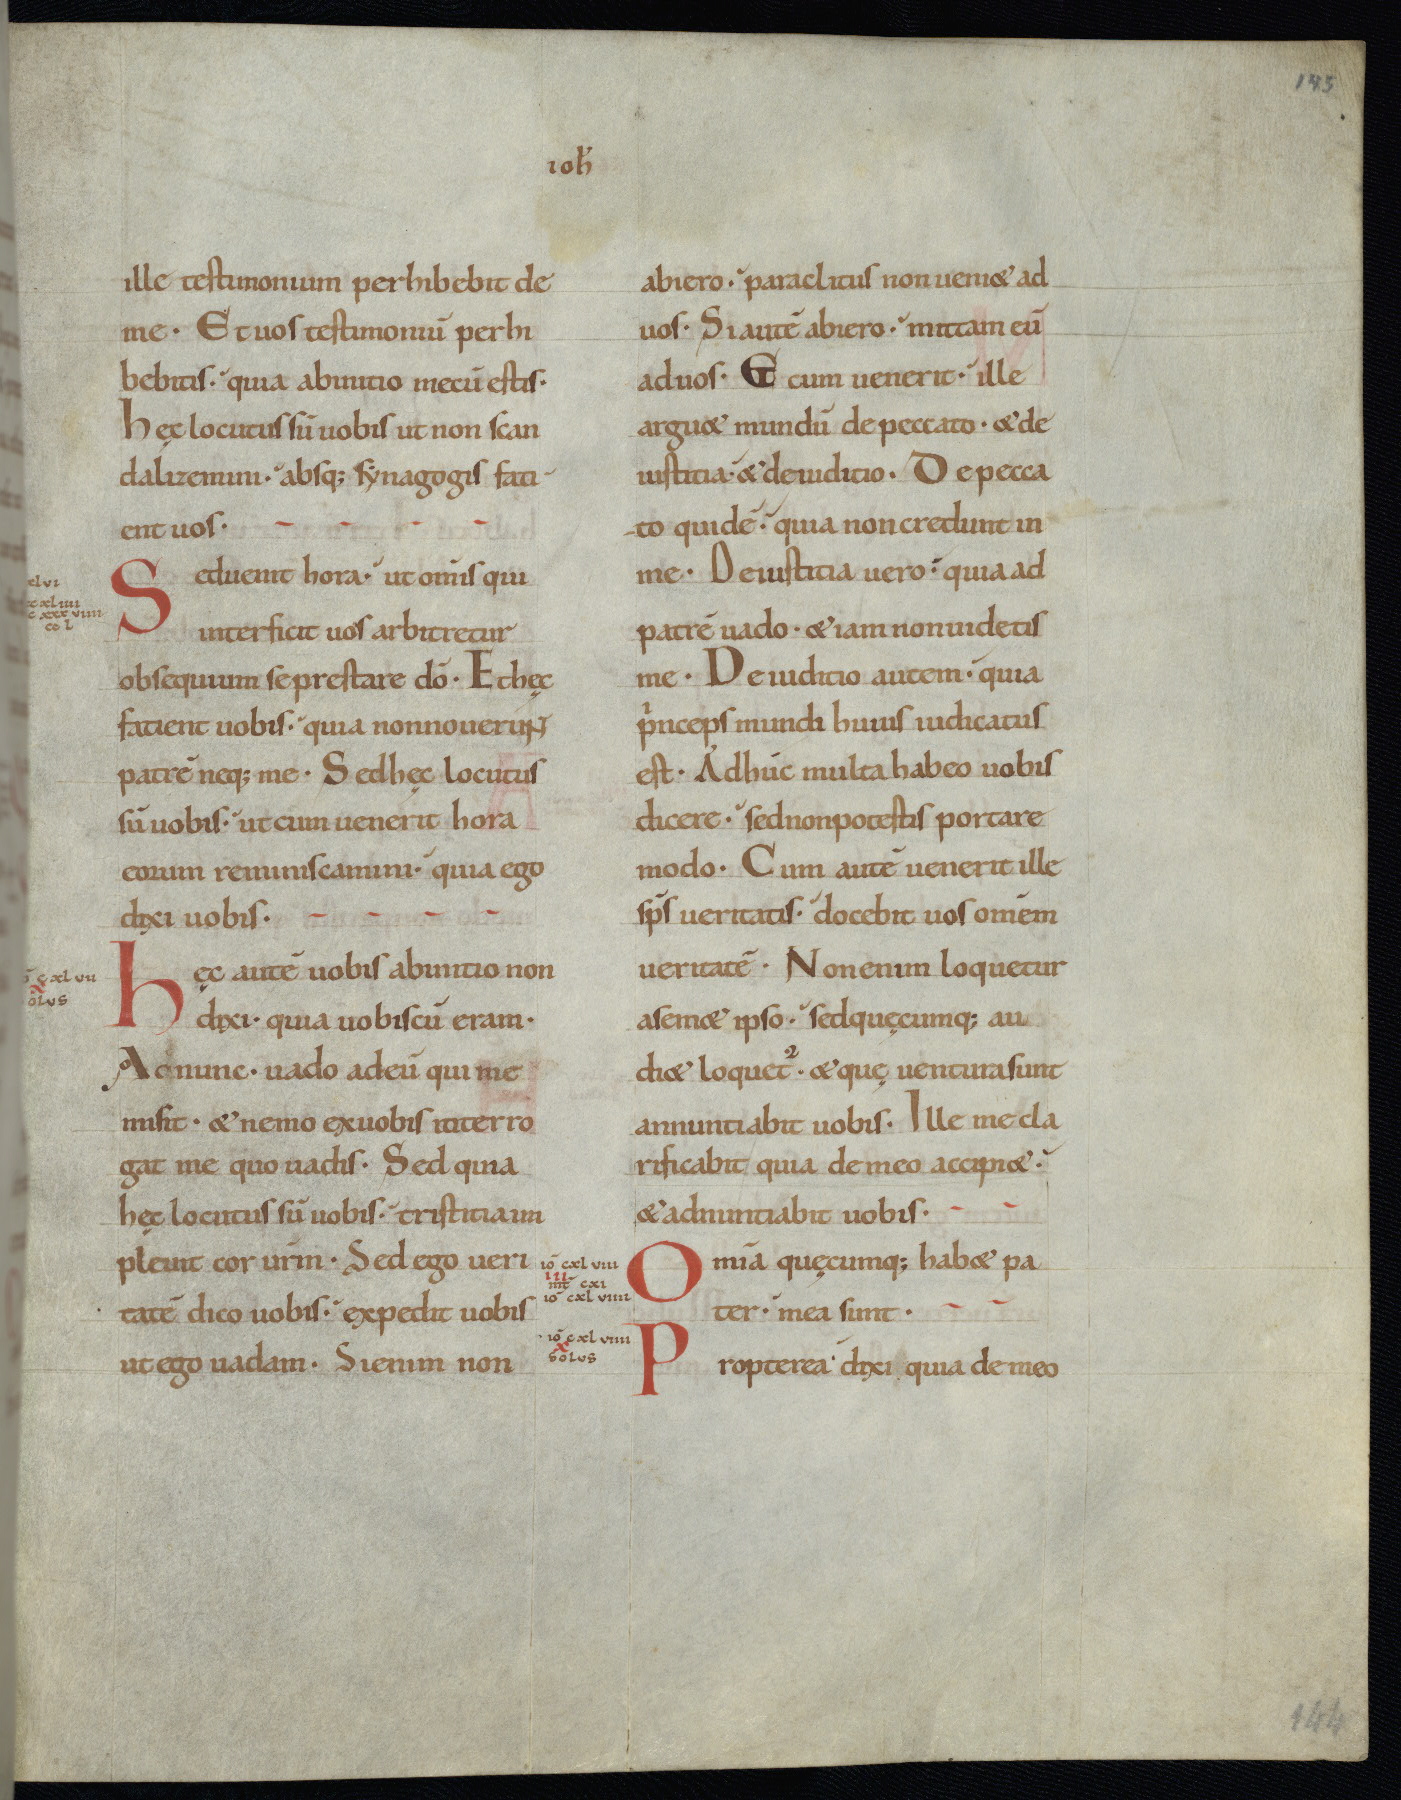 145
ioh̅
ille testimonium perhibebit de
me · Et uos testimoniū perhi
bebitis · quia abinitio mecū estis ·
hęc locutus sū uobis ut non scan
dalizemini · absq; synagogis fati-
ent uos ·
Seduenit hora · ut om̄is qui
interficit uos arbitretur
obsequium seprestare dō · Ethęc
fatient uobis · quia nonnouerunt
patrē neq; me · Sedhęc locutus
sū uobis · ut cum uenerit hora
eorum reminiscamini · quia ego
dixi uobis ·
hęc autē uobis abinitio non
dixi · quia uobiscū eram ·
Ac nunc · uado adeū qui me
misit · & nemo exuobis interro
gat me quo uadis · Sed quia
hęc locutus sū uobis · tristitia im
pleuit cor ur̄m · Sed ego ueri
tatē dico uobis · expedit uobis
ut ego uadam · Si enim non
abiero · paraclitus non ueni& ad
uos · Si autē abiero · mittam eū
ad uos · Et cum uenerit · ille
argu& mundū de peccato · & de
iustitia · & de iuditio · De pecca
to quidē · quia non credunt in
me · De iustitia uero · quia ad
patrē uado · & iam non uidetis
me · De iuditio autem · quia
p̍nceps mundi huius iudicatus
est · Adhuc multa habeo uobis
dicere · sed non potestis portare
modo · Cum autē uenerit ille
sp̄s ueritatis · docebit uos om̄em
ueritatē · Non enim loquetur
a sem& ipso · sed quęcumq; au
di& loquet᷑ · & quę uentura sunt
annuntiabit uobis · Ille me cla
rificabit quia de meo accipi& ·
& adnuntiabit uobis ·
iō cxl viii
iii
mt̄ cxi
iō cxl viiii
Omīa quęcumq; hab& pa
ter · mea sunt ·
iō cxl viiii
x
solus
Propterea dixi quia de meo
144